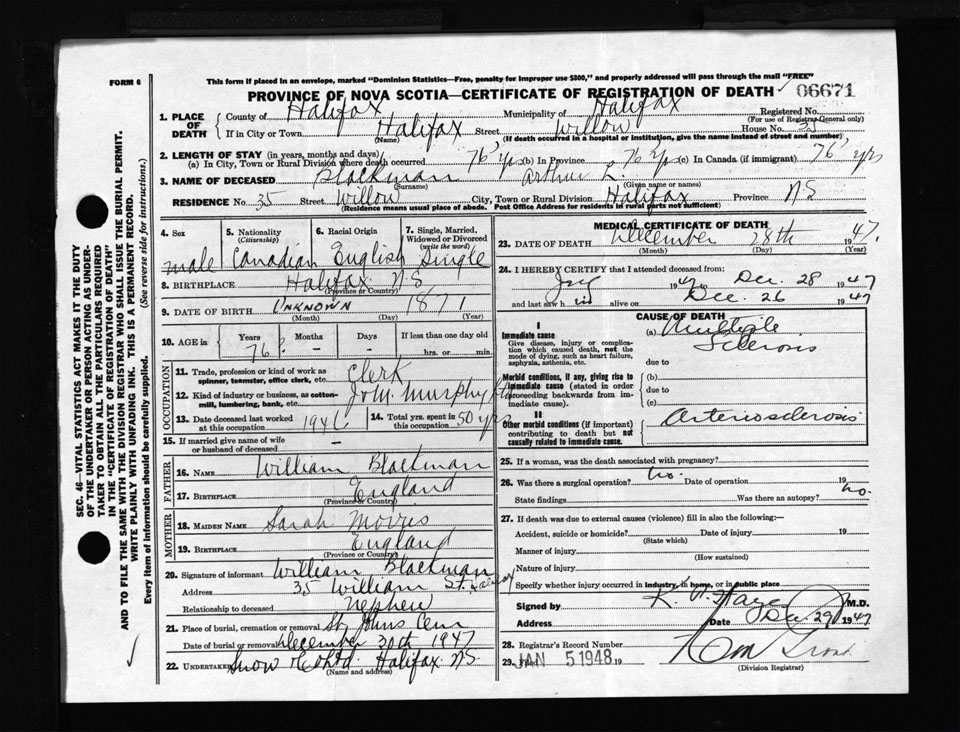 FORM 6
This form if placed in an envelope, marked "Dominion Statistics—Free, penalty for improper use $300," and properly addressed will pass through the mail "FREE"
PROVINCE OF NOVA SCOTIA—CERTIFICATE OF REGISTRATION OF DEATH 06671
SEC. 46—VITAL STATISTICS ACT MAKES IT THE DUTY
OF THE UNDERTAKER OR PERSON ACTING AS UNDER-
TAKER TO OBTAIN ALL THE PARTICULARS REQUIRED
IN THE "CERTIFICATE OF REGISTRATION OF DEATH"
AND TO FILE THE SAME WITH THE DIVISION REGISTRAR WHO SHALL ISSUE THE BURIAL PERMIT.
WRITE PLAINLY WITH UNFADING INK. THIS IS A PERMANENT RECORD.
Every item of information should be carefully supplied. (See reverse side for instructions.)
1. PLACE OF DEATH
County of Halifax Municipality of Halifax Registered No.
(For use of Registrar General only)
If in City or Town Halifax Street Willow House No. 35
(Name) (If death occurred in a hospital or institution, give the name instead of street and number)
2. LENGTH OF STAY (in years, months and days)
(a) In City, Town or Rural Division where death occurred 76 yrs (b) In Province 76 yrs (c) In Canada (if immigrant) 76 yrs
3. NAME OF DECEASED Blackman Arthur L.
(Surname) (Given name or names)
RESIDENCE No. 35 Street Willow City, Town or Rural Division Halifax Province N.S
(Residence means usual place of abode. Post Office Address for residents in rural parts not sufficient)
4. Sex 5. Nationality (Citizenship) 6. Racial Origin 7. Single, Married, Widowed or Divorced (write the word)
male Canadian English Single
8. BIRTHPLACE Halifax N.S
(Province or Country)
9. DATE OF BIRTH UNKNOWN 1871
(Month) (Day) (Year)
10. AGE in Years Months Days If less than one day
76? - - hrs. or min.
OCCUPATION
11. Trade, profession or kind of work as spinner, teamster, office clerk, etc. Clerk
12. Kind of industry or business, as cotton-mill, lumbering, bank, etc. J & M. Murphy
13. Date deceased last worked at this occupation 1946 14. Total yrs. spent in this occupation 50 yrs
15. If married give name of wife or husband of deceased -
FATHER
16. NAME William Blackman
17. BIRTHPLACE England
(Province or Country)
MOTHER
18. MAIDEN NAME Sarah Morris
19. BIRTHPLACE England
(Province or Country)
20. Signature of informant William Blackman
Address 35 William St.
Relationship to deceased Nephew
21. Place of burial, cremation or removal St Johns Cem
Date of burial or removal December 30th 1947
22. UNDERTAKER Snow & Co Ltd. Halifax N.S.
(Name and address)
MEDICAL CERTIFICATE OF DEATH
23. DATE OF DEATH December 28th 1947.
(Month) (Day) (Year)
24. I HEREBY CERTIFY that I attended deceased from:
1947 to Dec. 28 1947
and last saw him alive on Dec. 26 1947
CAUSE OF DEATH
I
Immediate cause (a) Multiple Sclerosis
Give disease, injury or complication which caused death, not the mode of dying, such as heart failure, asphyxia, asthenia, etc.
due to
Morbid conditions, if any, giving rise to immediate cause (stated in order proceeding backwards from immediate cause).
(b)
due to
(c)
II
Other morbid conditions (if important) contributing to death but not causally related to immediate cause.
Arteriosclerosis
25. If a woman, was the death associated with pregnancy?
26. Was there a surgical operation? no. Date of operation 19
State findings Was there an autopsy? no.
27. If death was due to external causes (violence) fill in also the following:—
Accident, suicide or homicide? Date of injury 19
(State which)
Manner of injury
(How sustained)
Nature of injury
Specify whether injury occurred in industry, in home, or in public place
Signed by M.D.
Address Date Dec. 29 1947
28. Registrar's Record Number
29. JAN 5 1948 19
(Division Registrar)